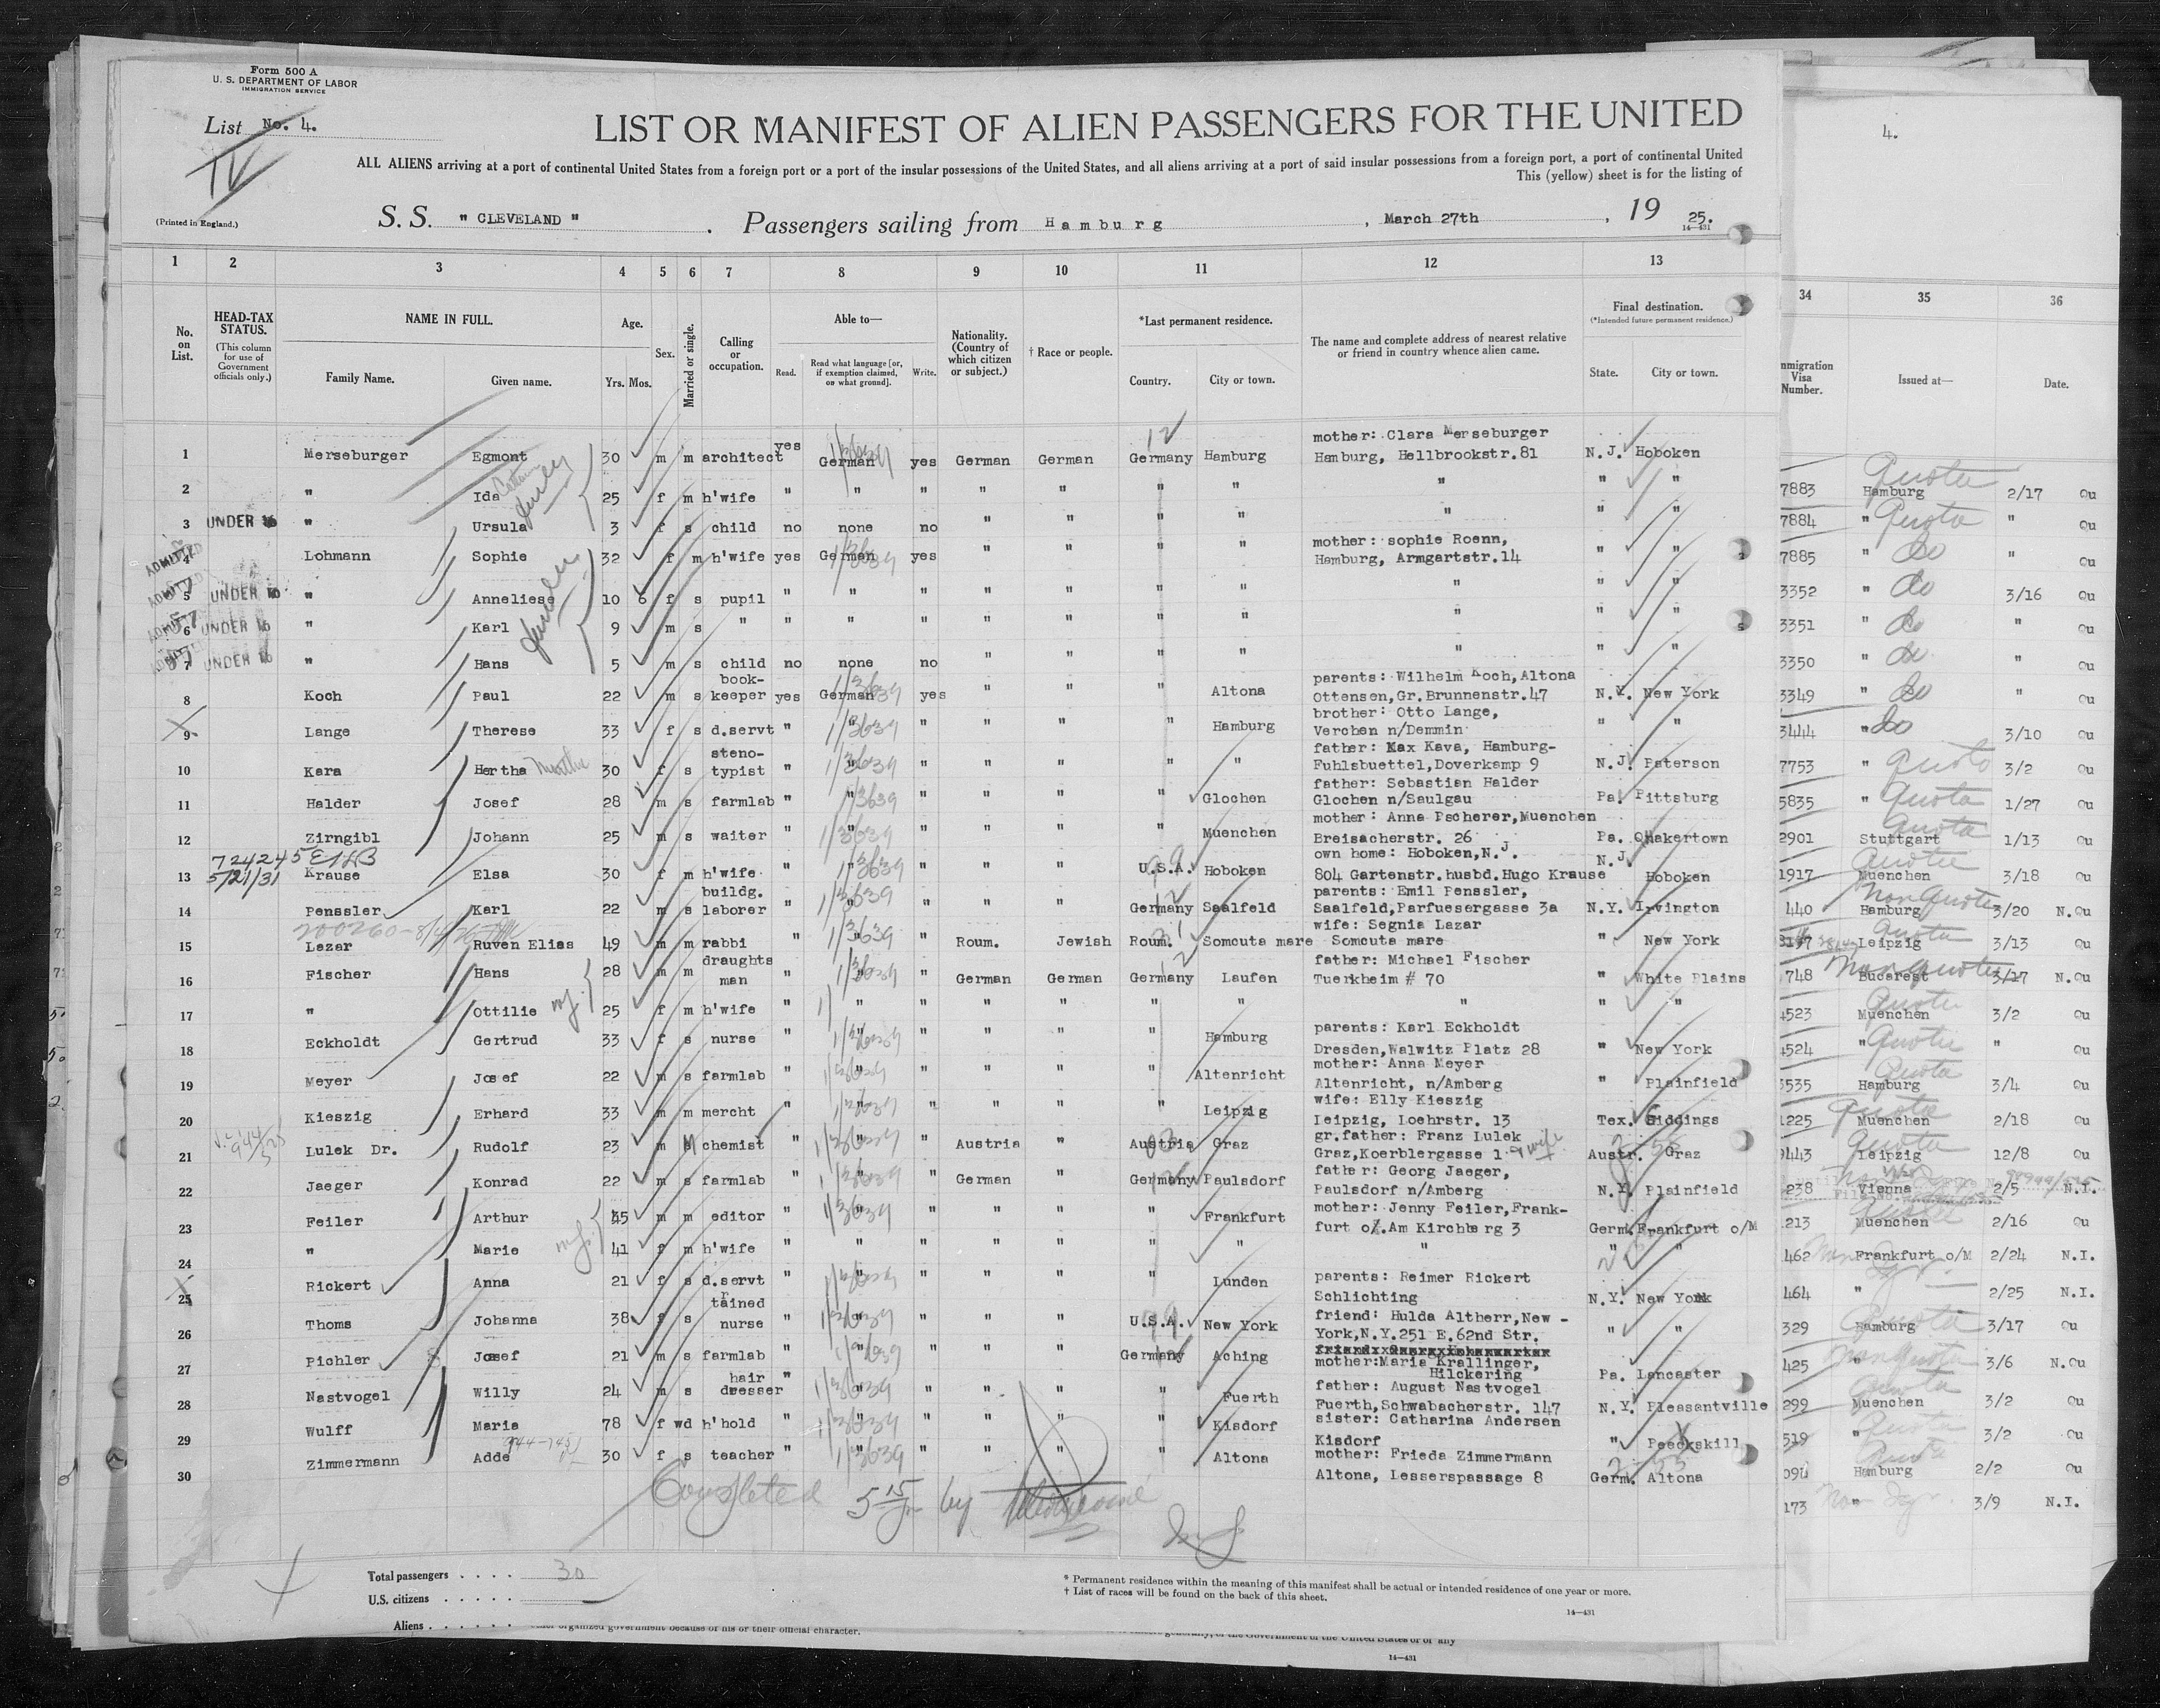 Form 500 A
U. S. DEPARTMENT OF LABOR
IMMIGRATION SERVICE
List No. 4.
IV
(Printed in England.)
LIST OR MANIFEST OF ALIEN PASSENGERS FOR THE UNITED
ALL ALIENS arriving at a port of continental United States from a foreign port or a port of the insular possessions of the United States, and all aliens arriving at a port of said insular possessions from a foreign port, a port of continental United
This (yellow) sheet is for the listing of
S. S. " CLEVELAND " . Passengers sailing from Hamburg , March 27th , 19 25.
14—431
4.
1 2 3 4 5 6 7 8 9 10 11 12 13 34 35 36
No. on List.
HEAD-TAX STATUS.
(This column for use of Government officials only.)
NAME IN FULL.
Family Name. Given name.
Age.
Yrs. Mos.
Sex.
Married or single.
Calling or occupation.
Able to—
Read. Read what language [or, if exemption claimed, on what ground]. Write.
Nationality. (Country of which citizen or subject.)
† Race or people.
*Last permanent residence.
Country. City or town.
The name and complete address of nearest relative or friend in country whence alien came.
Final destination.
(*Intended future permanent residence.)
State. City or town.
mmigration Visa Number.
Issued at—
Date.
1 Merseburger Egmont 30 m m architect yes German yes German German Germany Hamburg mother: Clara Merseburger Hamburg, Hellbrookstr.81 N.J. Hoboken
2 " Ida 25 f m h'wife " " " " " " " " " "
3 UNDER 16 " Ursula 3 f s child no none no " " " " " " "
4 ADMITTED Lohmann Sophie 32 f m h'wife yes German yes " " " " mother: sophie Roenn, Hamburg, Armgartstr.14 " "
5 ADMITTED UNDER 16 " Anneliese 10 6 f s pupil " " " " " " " " " "
6 ADMITTED UNDER 16 " Karl 9 m s " " " " " " " " " " "
7 UNDER 16 " Hans 5 m s child no none no " " " " " " "
8 Koch Paul 22 m s book-keeper yes German yes " " " Altona parents: Wilhelm Koch,Altona Ottensen,Gr.Brunnenstr.47 N.Y. New York
9 Lange Therese 33 f s d.servt " " " " " " Hamburg brother: Otto Lange, Verchen n/Demmin " "
10 Kara Hertha Martha 30 f s steno-typist " " " " " " " father: Max Kava, Hamburg-Fuhlsbuettel,Doverkamp 9 N.J. Paterson
11 Halder Josef 28 m s farmlab " " " " " " Glochen father: Sebastian Halder Glochen n/Saulgau Pa. Pittsburg
12 Zirngibl Johann 25 m s waiter " " " " " " Muenchen mother: Anna Pscherer,Muenchen Breisacherstr. 26 Pa. Quakertown
724245
5/21/31
13 Krause Elsa 30 f m h'wife " " " " " U.S.A. Hoboken own home: Hoboken,N.J. 804 Gartenstr.husbd.Hugo Krause N.J. Hoboken
14 Penssler Karl 22 m s buildg. laborer " " " " " Germany Saalfeld parents: Emil Penssler, Saalfeld,Parfuesergasse 3a N.Y. Irvington
200260
15 Lazar Ruven Elias 49 m m rabbi " " " Roum. Jewish Roum. Somcuta mare wife: Segnia Lazar Somcuta mare " New York
16 Fischer Hans 28 m m draughts man " " " German German Germany Laufen father: Michael Fischer Tuerkheim # 70 " White Plains
17 " Ottilie 25 f m h'wife " " " " " " " " " "
18 Eckholdt Gertrud 33 f s nurse " " " " " " Hamburg parents: Karl Eckholdt Dresden,Walwitz Platz 28 " New York
19 Meyer Josef 22 m s farmlab " " " " " " Altenricht mother: Anna Meyer Altenricht, n/Amberg " Plainfield
20 Kieszig Erhard 33 m m mercht " " " " " " Leipzig wife: Elly Kieszig Leipzig, Loehrstr. 13 Tex. Giddings
21 Lulek Dr. Rudolf 23 m M chemist " " " Austria " Austria Graz gr.father: Franz Lulek Graz,Koerblergasse 1 wife Austr. Graz
22 Jaeger Konrad 22 m s farmlab " " " German " Germany Paulsdorf father: Georg Jaeger, Paulsdorf n/Amberg N.Y. Plainfield
23 Feiler Arthur 45 m m editor " " " " " " Frankfurt mother: Jenny Feiler,Frank-furt o/.Am Kirchberg 3 Germ. Frankfurt o/M
24 " Marie 41 f m h'wife " " " " " " " " " "
25 Rickert Anna 21 f s d.servt " " " " " " Lunden parents: Reimer Rickert Schlichting N.Y. New York
26 Thoms Johanna 38 f s trained nurse " " " " " U.S.A. New York friend: Hulda Altherr,New -York,N.Y.251 E.62nd Str. " "
27 Pichler Josef 21 m s farmlab " " " " " Germany Aching mother:Maria Krallinger, Hilckering Pa. Lancaster
28 Nastvogel Willy 24 m s hair dresser " " " " " " Fuerth father: August Nastvogel Fuerth,Schwabacherstr. 147 N.Y. Pleasantville
29 Wulff Maria 78 f wd h'hold " " " " " " Kisdorf sister: Catharina Andersen Kisdorf " Peeckskill
30 Zimmermann Adde 30 f s teacher " " " " " " Altona mother: Frieda Zimmermann Altona, Lesserspassage 8 Germ. Altona
7883 Hamburg Quota 2/17 Qu
7884 " Quota " Qu
7885 " do " Qu
3352 " do 3/16 Qu
3351 " do " Qu
3350 " do " Qu
3349 " do " Qu
3444 " do 3/10 Qu
7753 " Quota 3/2 Qu
5835 " Quota 1/27 Qu
2901 Stuttgart Quota 1/13 Qu
1917 Muenchen Quota 3/18 Qu
440 Hamburg Non Quota 3/20 N.Qu
Leipzig Quota 3/13 Qu
748 Bucarest Non Quota 3/17 N.Qu
4523 Muenchen Quota 3/2 Qu
4524 " Quota " Qu
3535 Hamburg Quota 3/4 Qu
1225 Muenchen Quota 2/18 Qu
9443 Leipzig Quota 12/8 Qu
238 Vienna 2/5 N.I.
213 Muenchen Quota 2/16 Qu
462 Frankfurt o/M 2/24 N.I.
464 " 2/25 N.I.
329 Hamburg Quota 3/17 Qu
425 " Non Quota 3/6 N.Qu
299 Muenchen Quota 3/2 Qu
519 " Quota 3/2 Qu
Hamburg Quota 2/2 Qu
173 " 3/9 N.I.
Completed 5 15 by
Total passengers . . . . 30
U.S. citizens . . . . .
Aliens . . . . . .
* Permanent residence within the meaning of this manifest shall be actual or intended residence of one year or more.
† List of races will be found on the back of this sheet.
14—431
organized government because of his or their official character.
14—431